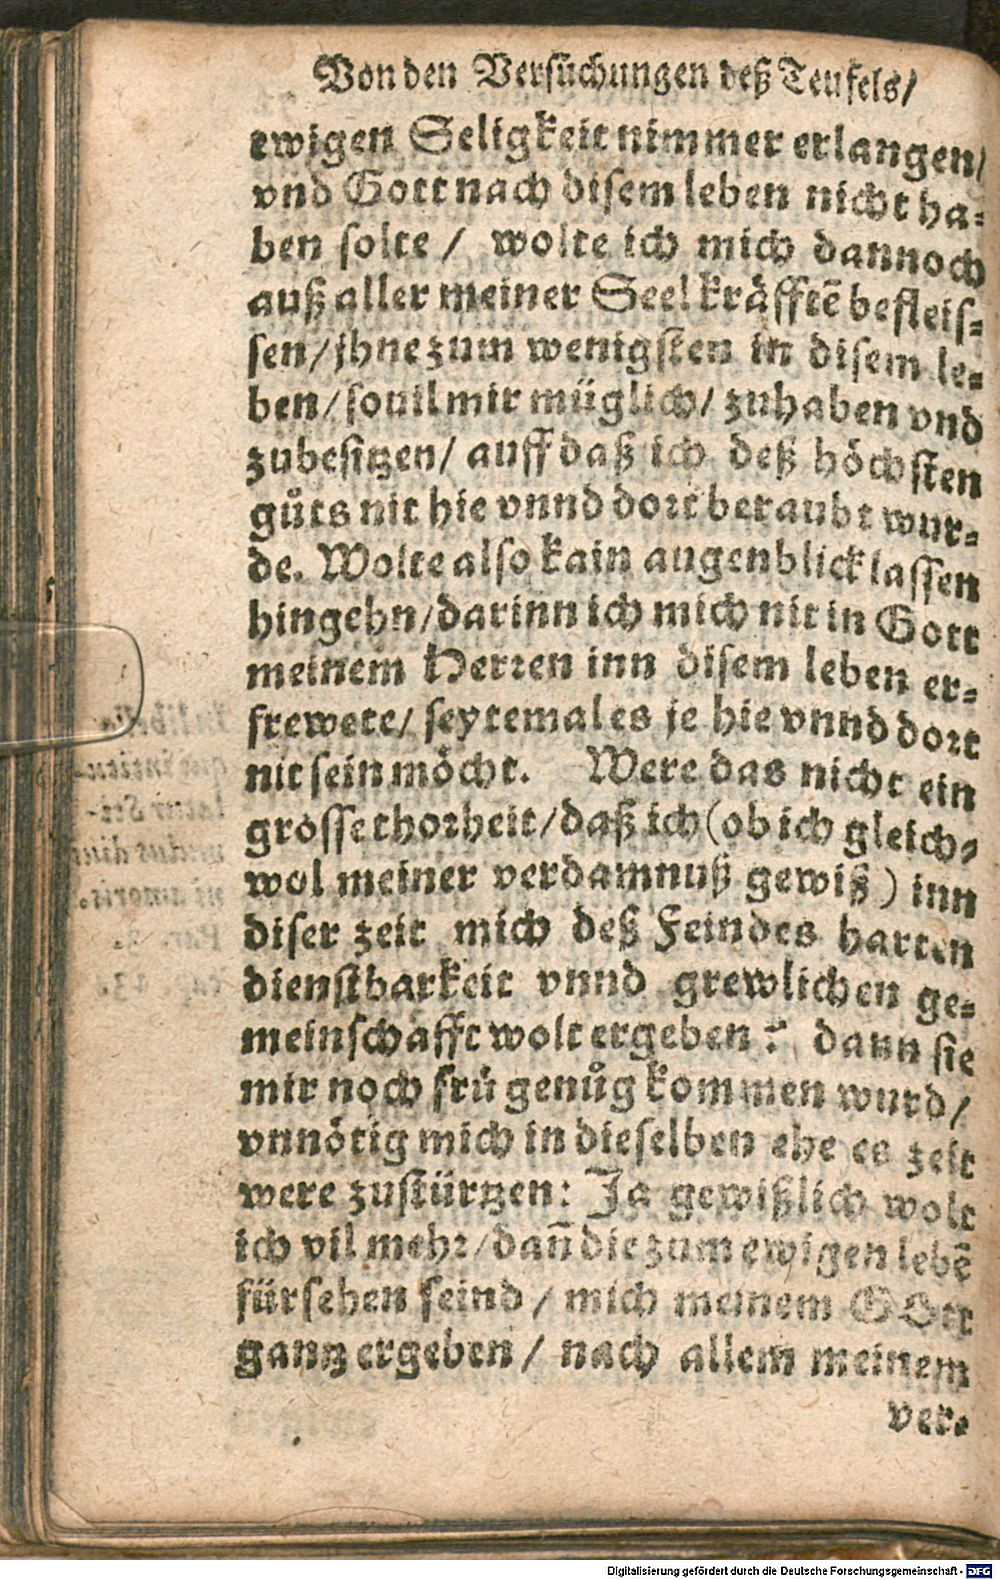 Von den Versuchungen deß Teufels/
ewigen Seligkeit nimmer erlangen/
vnd Gott nach disem leben nicht ha-
ben solte / wolte ich mich dannoch
auß aller meiner Seel kräfftẽ befleis-
sen/jhne zum wenigsten in disem le-
ben/souil mir müglich/ zuhaben vnd
zubesitzen/ auff daß ich deß höchsten
gůts nit hie vnnd dort beraubt wur-
de. Wolte also kain augenblick lassen
hingehn/darinn ich mich nit in Gott
meinem Herren inn disem leben er-
frewete/ seytemal es je hie vnnd dort
nit sein möcht. Were das nicht ein
grosse thorheit/daß ich (ob ich gleich-
wol meiner verdamnuß gewiß) inn
diser zeit mich deß Feindes harten
dienstbarkeit vnnd grewlichen ge-
meinschafft wolt ergeben? dann sie
mir noch frü genůg kommen wurd/
vnnötig mich in dieselben ehe es zeit
were zustürtzen: Ja gewißlich wolt
ich vil mehr/dañ die zum ewigen lebẽ
fürsehen seind / mich meinem GOtt
gantz ergeben/ nach allem meinem
ver-
Digitalisierung gefördert durch die Deutsche Forschungsgemeinschaft - DFG